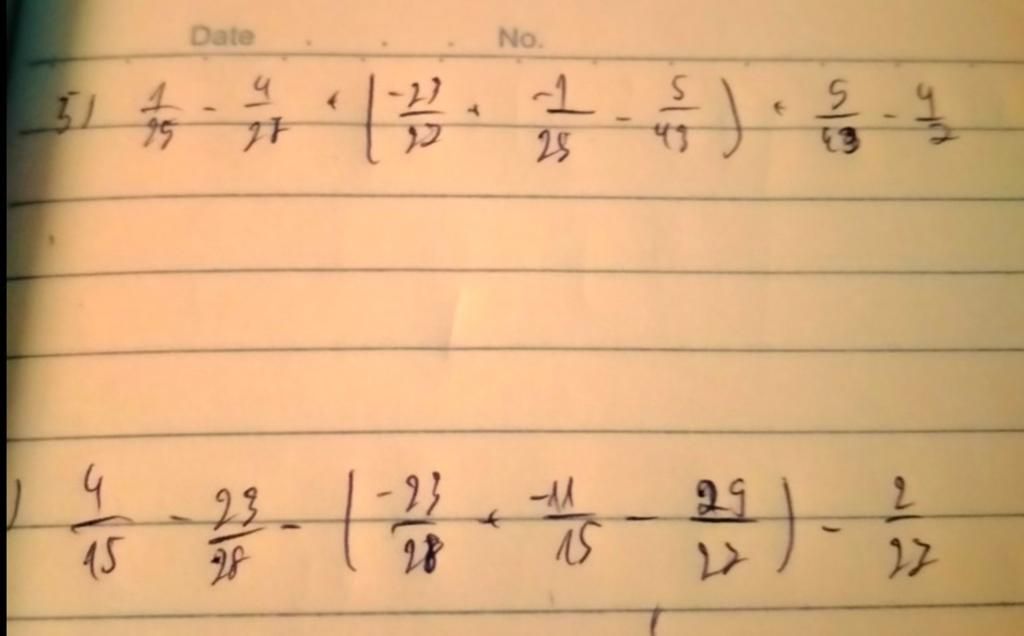 Date . . . No.
5) 1/25 - 4/27 + (-23/27 + -1/25 - 5/43) + 5/43 - 4/7
) 4/15 - 23/28 - (-23/28 + -11/15 - 29/27) - 2/27